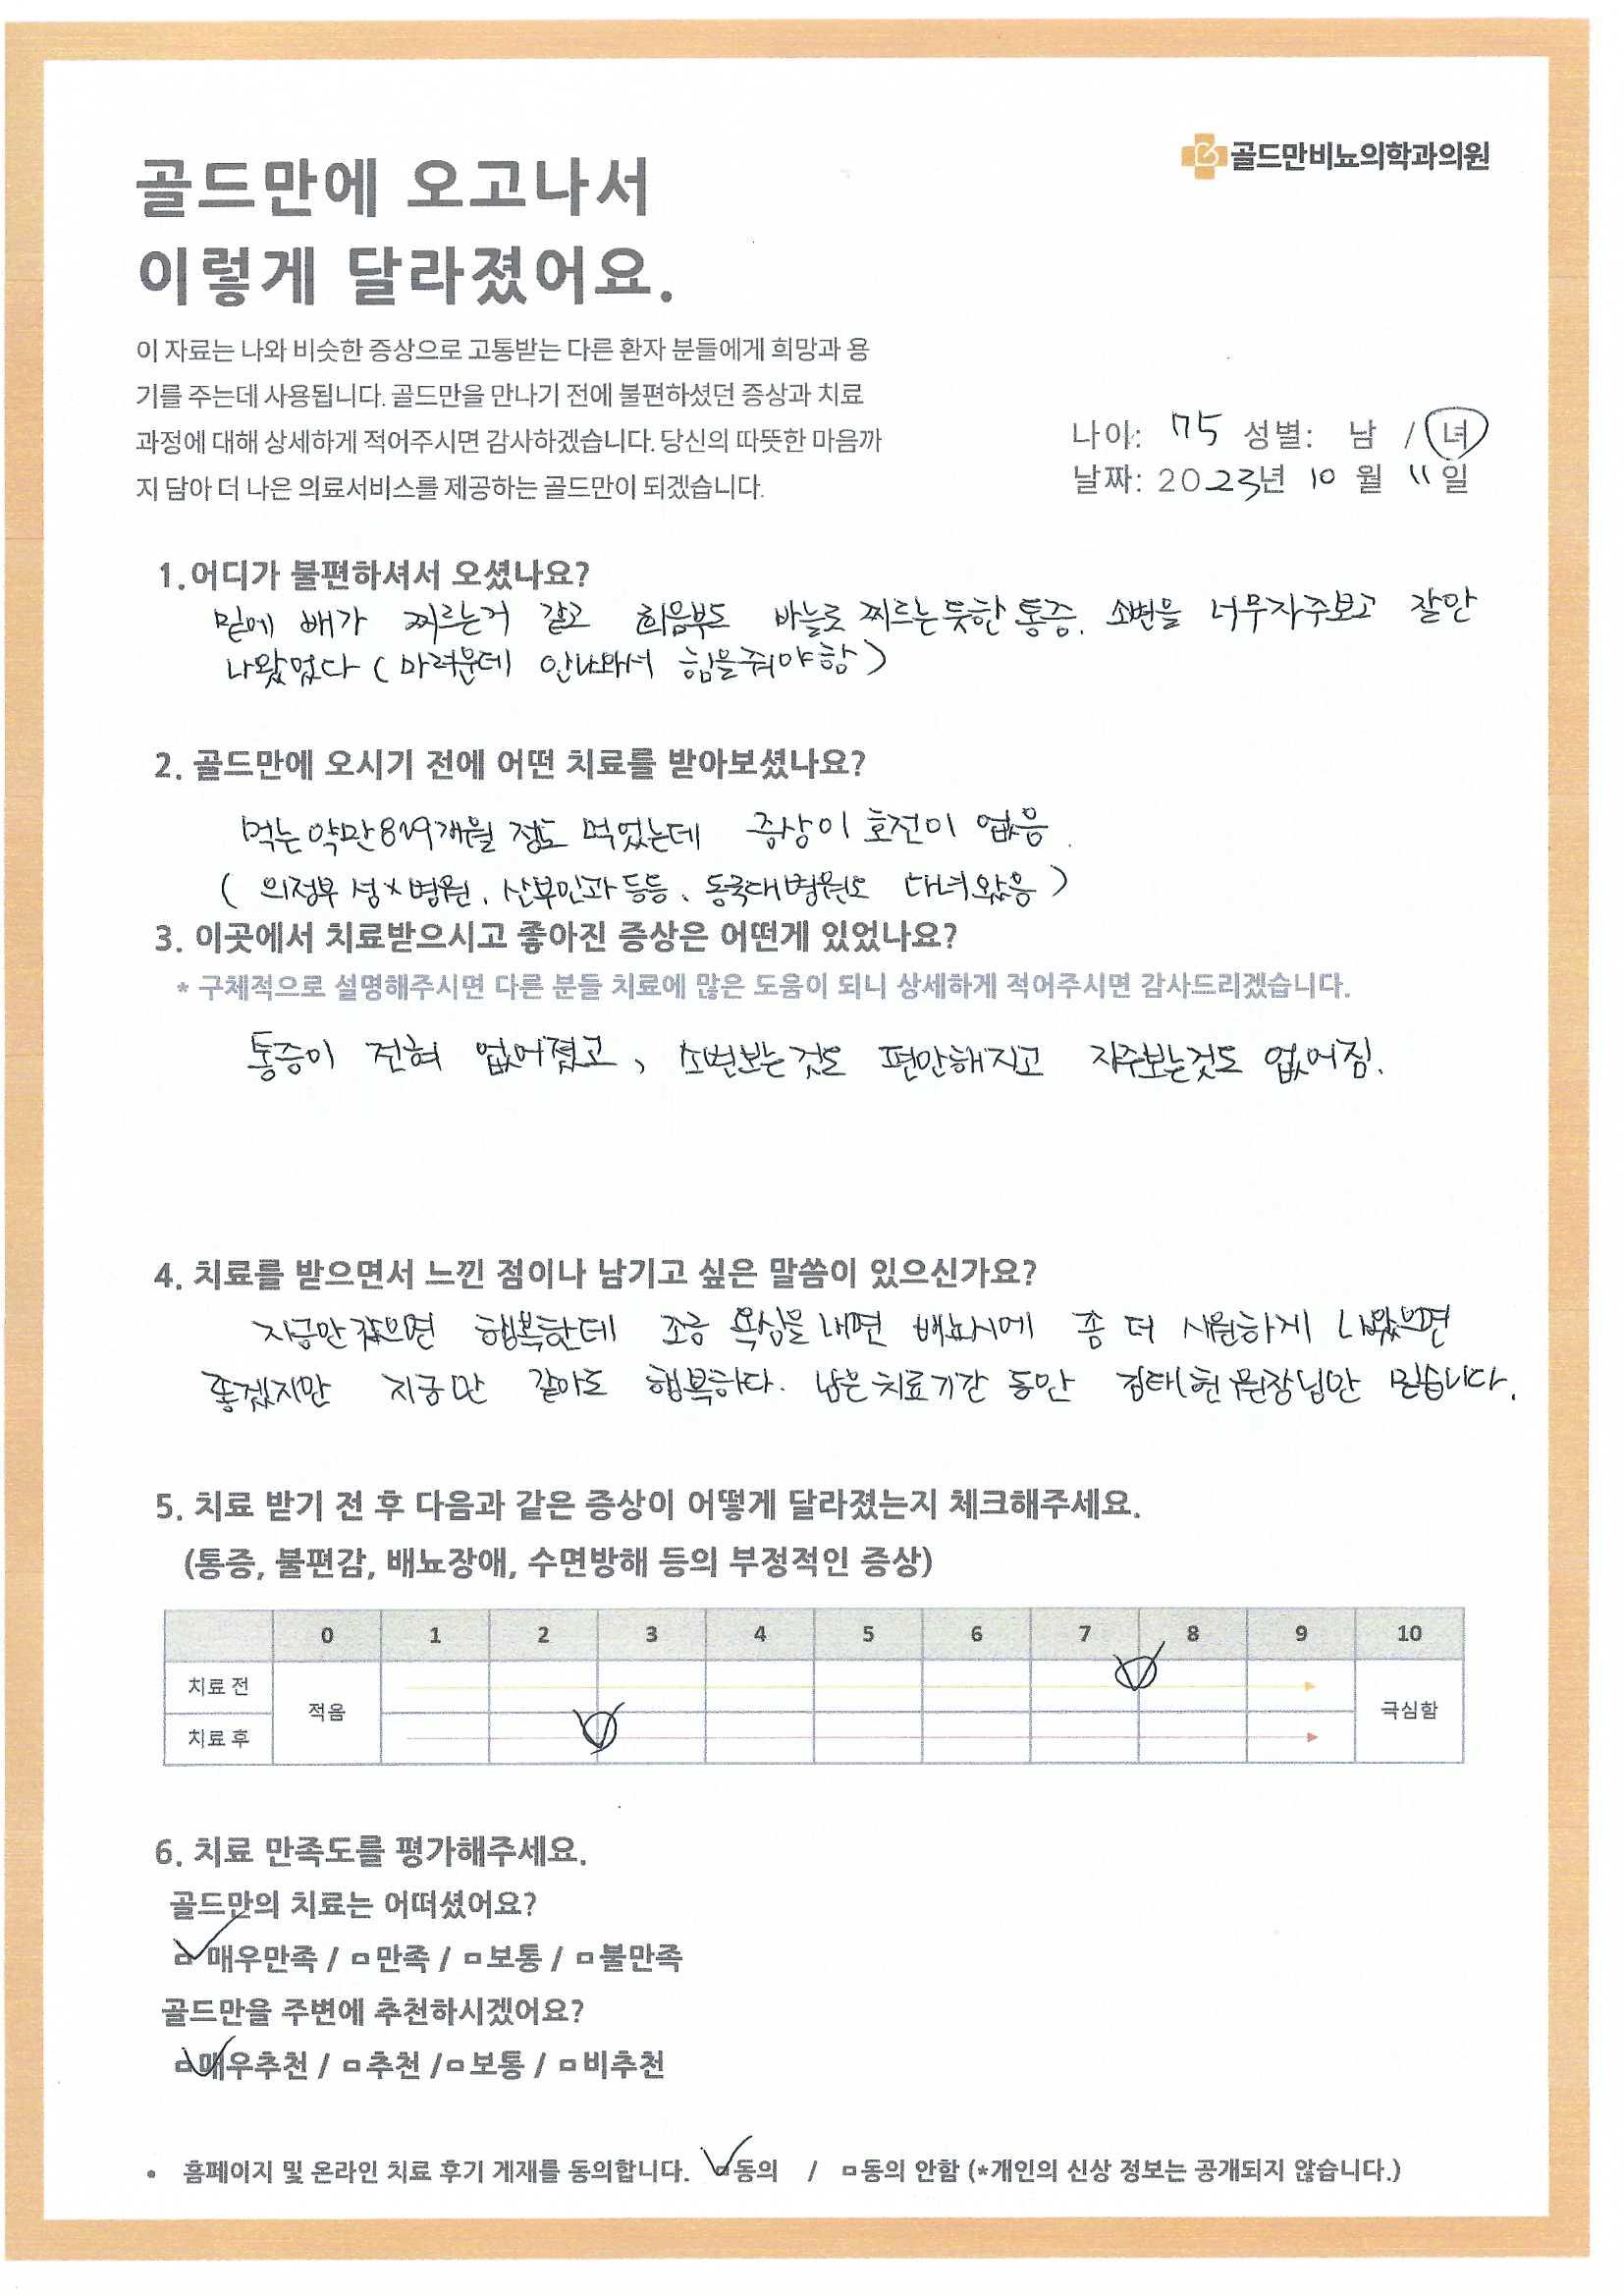 골드만비뇨의학과의원
골드만에 오고나서
이렇게 달라졌어요.
이 자료는 나와 비슷한 증상으로 고통받는 다른 환자 분들에게 희망과 용
기를 주는데 사용됩니다. 골드만을 만나기 전에 불편하셨던 증상과 치료
과정에 대해 상세하게 적어주시면 감사하겠습니다. 당신의 따뜻한 마음까
지 담아 더 나은 의료서비스를 제공하는 골드만이 되겠습니다.
나이: 75 성별: 남 / 녀
날짜: 2023년 10 월 11일
1.어디가 불편하셔서 오셨나요?
밑에 배가 찌르는거 같고 회음부도 바늘로 찌르는듯한 통증. 소변을 너무자주보고 잘안
나왔었다 (마려운데 안나와서 힘을줘야함)
2. 골드만에 오시기 전에 어떤 치료를 받아보셨나요?
먹는약만 8~9개월 정도 먹었는데 증상이 호전이 없음.
( 의정부 성x병원, 산부인과 등등, 동국대병원도 다녀왔음 )
3. 이곳에서 치료받으시고 좋아진 증상은 어떤게 있었나요?
* 구체적으로 설명해주시면 다른 분들 치료에 많은 도움이 되니 상세하게 적어주시면 감사드리겠습니다.
통증이 전혀 없어졌고, 소변보는것도 편안해지고 자주보는것도 없어짐.
4. 치료를 받으면서 느낀 점이나 남기고 싶은 말씀이 있으신가요?
지금만 같으면 행복한데 조금 욕심을내면 배뇨시에 좀 더 시원하게 나왔으면
좋겠지만 지금만 같아도 행복하다. 남은치료기간 동안 김태헌원장님만 믿습니다.
5. 치료 받기 전 후 다음과 같은 증상이 어떻게 달라졌는지 체크해주세요.
(통증, 불편감, 배뇨장애, 수면방해 등의 부정적인 증상)
0 1 2 3 4 5 6 7 8 9 10
치료 전
적음
극심함
치료 후
6. 치료 만족도를 평가해주세요.
골드만의 치료는 어떠셨어요?
매우만족 / ㅁ만족 / ㅁ보통 / ㅁ불만족
골드만을 주변에 추천하시겠어요?
ㅁ매우추천 / ㅁ추천 /ㅁ보통 / ㅁ비추천
• 홈페이지 및 온라인 치료 후기 게재를 동의합니다. ㅁ동의 / ㅁ동의 안함 (*개인의 신상 정보는 공개되지 않습니다.)